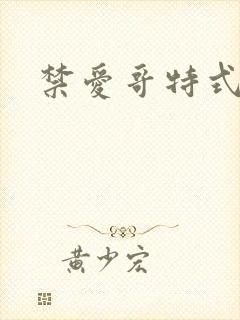 禁愛哥特式
黃少宏